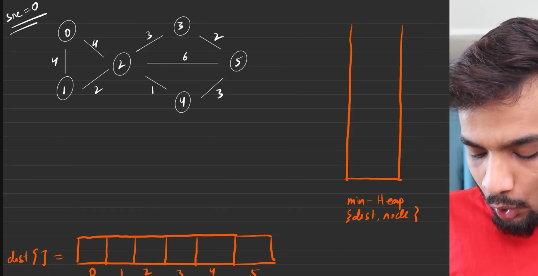 src = 0
0
4
4
1
2
2
3
3
2
6
5
1
4
3
min-Heap
{dist, node}
dist[] =
0 1 2 3 4 5